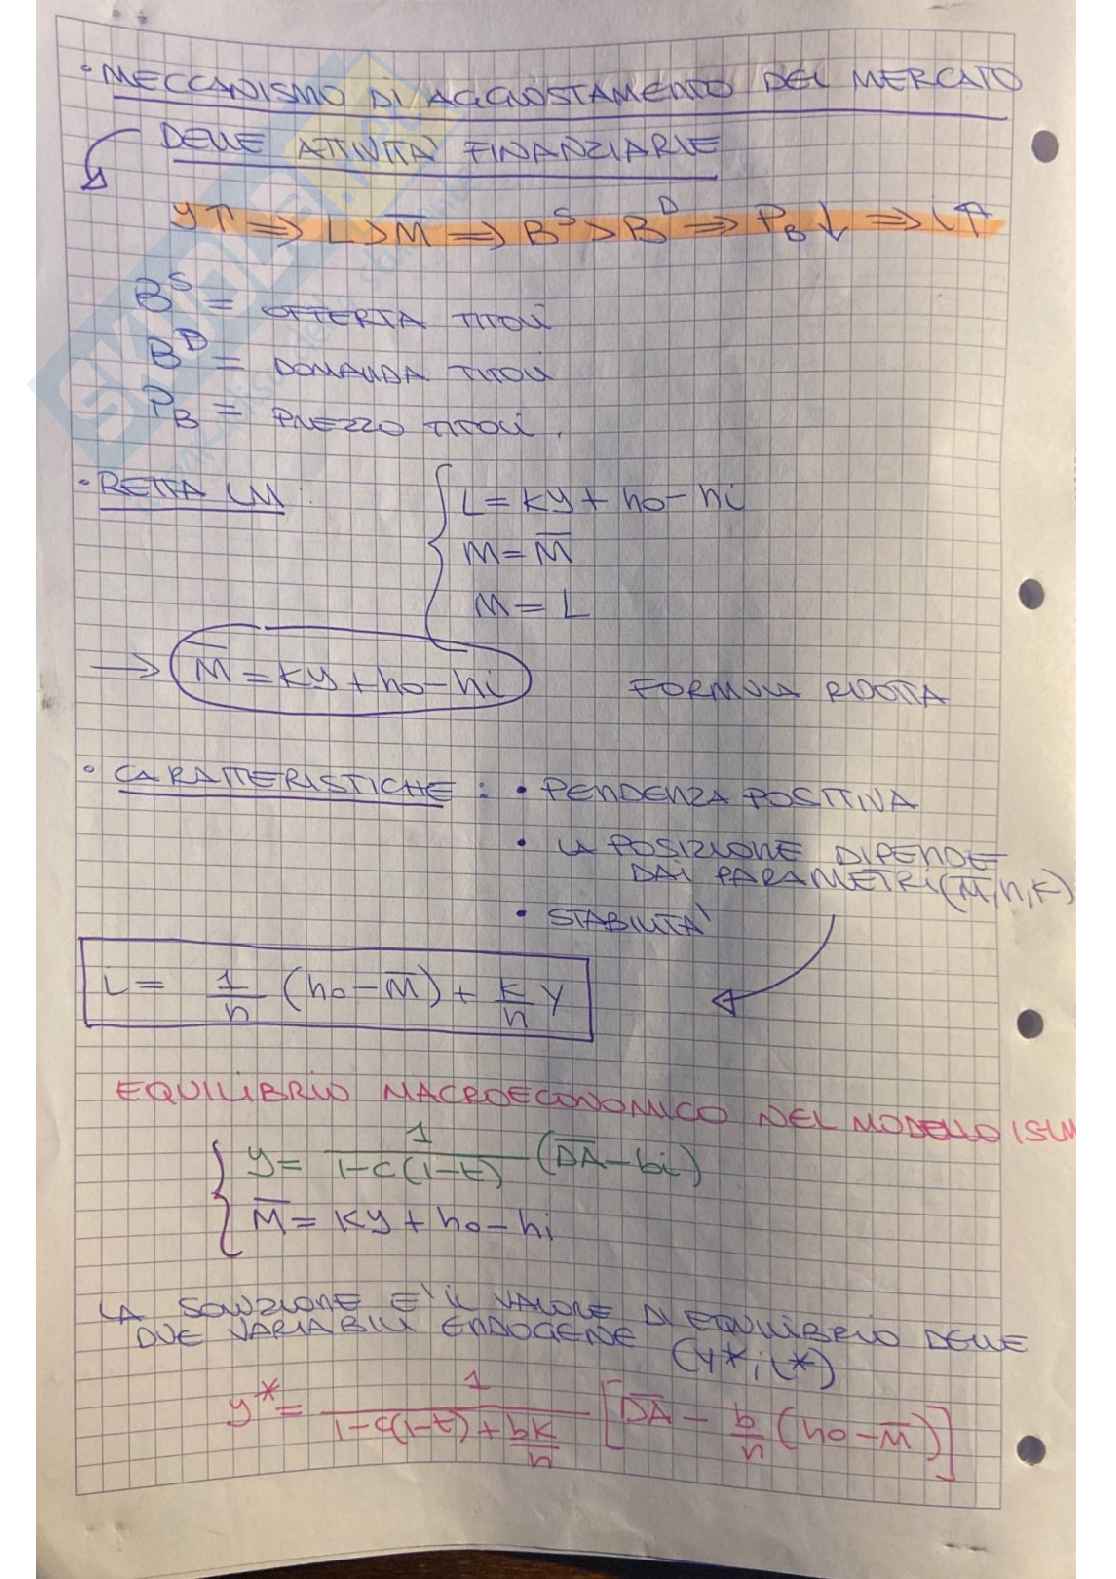 • MECCANISMO DI AGGIUSTAMENTO DEL MERCATO
DELLE ATTIVITA' FINANZIARIE
y↑ ⇒ L>M̅ ⇒ Bˢ>Bᴰ ⇒ P_B↓ ⇒ i↑
Bˢ = OFFERTA TITOLI
Bᴰ = DOMANDA TITOLI
P_B = PREZZO TITOLI.
• RETTA LM :
L = ky + ho - hi
M = M̅
M = L
→ M̅ = ky + ho - hi FORMULA RIDOTTA
• CARATTERISTICHE : • PENDENZA POSITIVA
• LA POSIZIONE DIPENDE
DAI PARAMETRI (M̅, h, k)
• STABILITA'
i = 1/h (ho - M̅) + k/h Y
EQUILIBRIO MACROECONOMICO NEL MODELLO ISLM
y = 1/1-c(1-t) (D̅A̅ - bi)
M̅ = ky + ho - hi
LA SOLUZIONE E' IL VALORE DI EQUILIBRIO DELLE
DUE VARIABILI ENDOGENE (Y*, i*)
y* = 1/1-c(1-t) + bk/h [D̅A̅ - b/h (ho - M̅)]